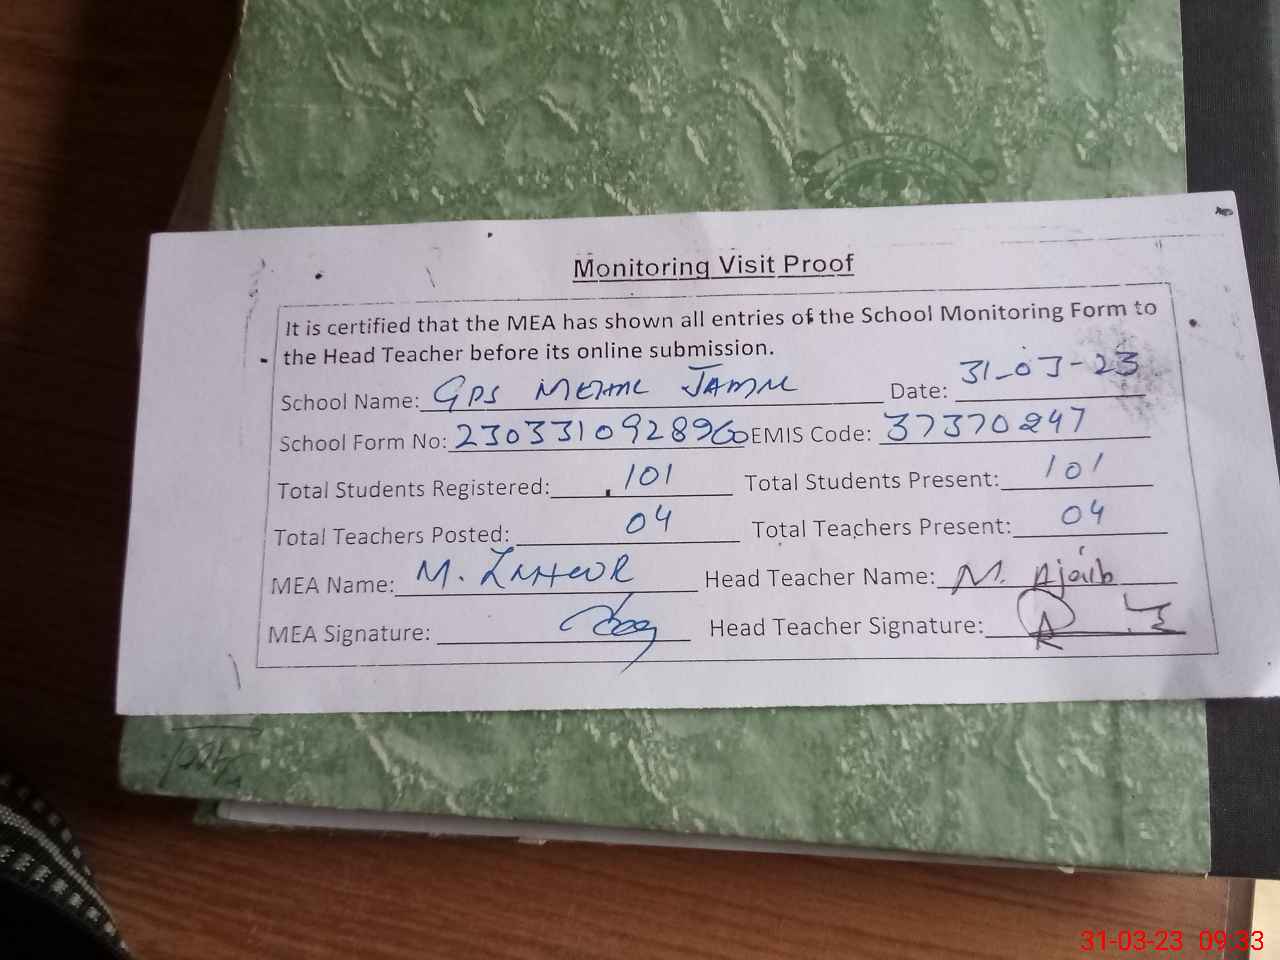 Monitoring Visit Proof
It is certified that the MEA has shown all entries of the School Monitoring Form to
the Head Teacher before its online submission.
School Name: GPS MEHAL JAMAL Date: 31-03-23
School Form No: 230331092896 EMIS Code: 37370247
Total Students Registered: 101 Total Students Present: 101
Total Teachers Posted: 04 Total Teachers Present: 04
MEA Name: M. ZAHOOR Head Teacher Name: M. Ajaib
MEA Signature: Head Teacher Signature:
31-03-23 09:33